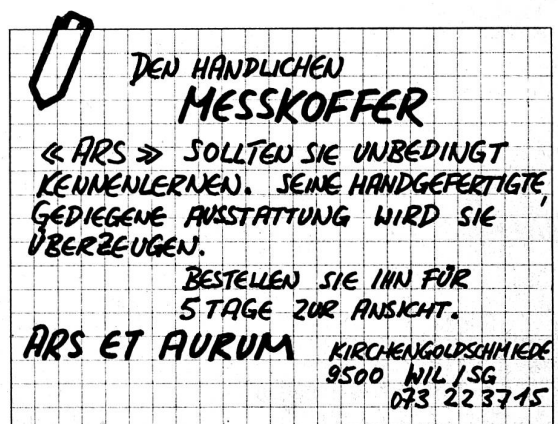 DEN HANDLICHEN
MESSKOFFER
« ARS » SOLLTEN SIE UNBEDINGT
KENNENLERNEN. SEINE HANDGEFERTIGTE,
GEDIEGENE AUSSTATTUNG WIRD SIE
ÜBERZEUGEN.
BESTELLEN SIE IHN FÜR
5 TAGE ZUR ANSICHT.
ARS ET AURUM
KIRCHENGOLDSCHMIEDE
9500 WIL / SG
073 223715